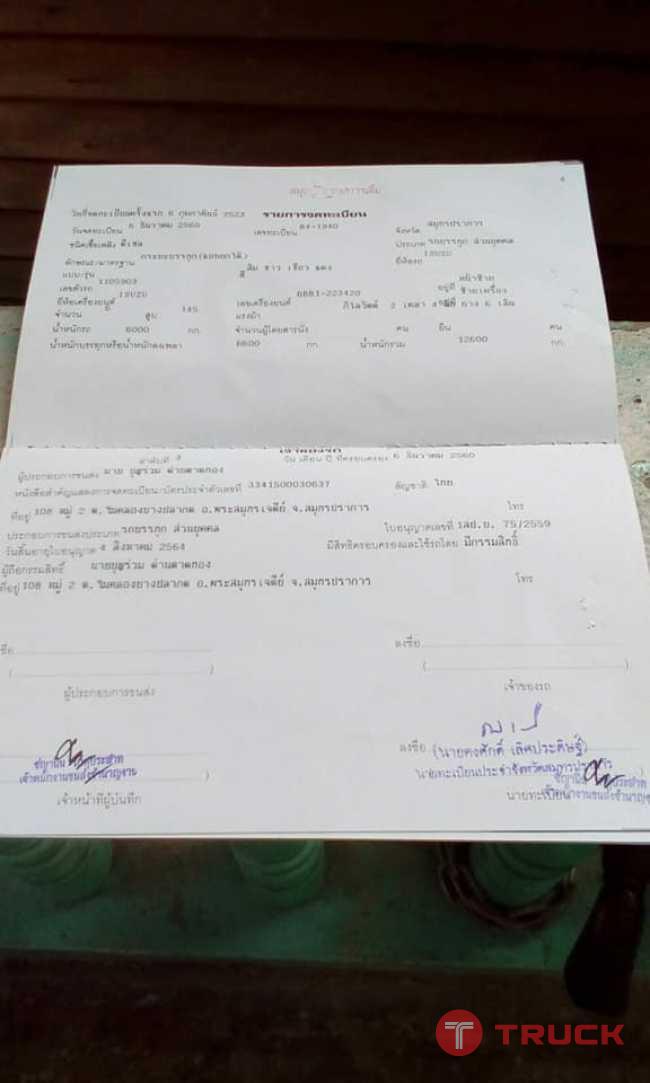 วันที่จดทะเบียนครั้งแรก 6 กุมภาพันธ์ 2523 รายการจดทะเบียน
วันจดทะเบียน 6 ธันวาคม 2560 เลขทะเบียน 84-1940 จังหวัด สมุทรปราการ
ชนิดเชื้อเพลิง ดีเซล ประเภท รถบรรทุก ส่วนบุคคล
ลักษณะ/มาตรฐาน กระบะบรรทุก(ยกเทได้) ยี่ห้อรถ ISUZU
แบบ/รุ่น สี ส้ม ขาว เขียว แดง
เลขตัวรถ 1105903 อยู่ที่ หน้าซ้าย
ยี่ห้อเครื่องยนต์ ISUZU เลขเครื่องยนต์ 6BB1-223420 อยู่ที่ ซ้ายเครื่อง
จำนวน 6 สูบ 145 แรงม้า กิโลวัตต์ 2 เพลา ยาง 6 เส้น
น้ำหนักรถ 6000 กก. จำนวนผู้โดยสารนั่ง คน ยืน คน
น้ำหนักบรรทุกหรือน้ำหนักลงเพลา 6600 กก. น้ำหนักรวม 12600 กก.
เจ้าของรถ
ลำดับที่ วัน เดือน ปี ที่ครอบครอง 6 ธันวาคม 2560
ผู้ประกอบการขนส่ง นาย
หนังสือสำคัญแสดงการจดทะเบียน/บัตรประจำตัวเลขที่ 3341500030637 สัญชาติ ไทย
ที่อยู่ 108 หมู่ 2 ต.ในคลองบางปลากด อ.พระสมุทรเจดีย์ จ.สมุทรปราการ โทร
ประกอบการขนส่งประเภท รถบรรทุก ส่วนบุคคล ใบอนุญาตเลขที่ 75/2559
วันสิ้นอายุใบอนุญาต 4 สิงหาคม 2564 มีสิทธิครอบครองและใช้รถโดย มีกรรมสิทธิ์
ผู้ถือกรรมสิทธิ์
ที่อยู่ 108 หมู่ 2 ต.ในคลองบางปลากด อ.พระสมุทรเจดีย์ จ.สมุทรปราการ โทร
ลงชื่อ
ผู้ประกอบการขนส่ง เจ้าของรถ
ลงชื่อ (นายคงศักดิ์ เลิศประดิษฐ์)
นายทะเบียนประจำจังหวัดสมุทรปราการ
เจ้าพนักงานขนส่งชำนาญงาน
เจ้าหน้าที่ผู้บันทึก นายทะเบียน
TRUCK